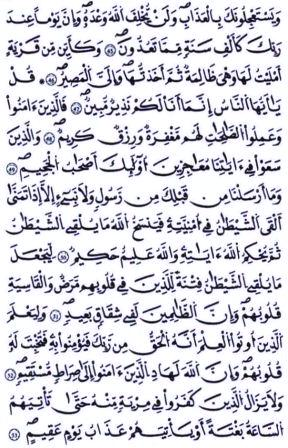 وَيَسْتَعْجِلُونَكَ بِالْعَذَابِ وَلَنْ يُّخْلِفَ اللَّهُ وَعْدَهُ وَإِنَّ يَوْماً عِندَ
رَبِّكَ كَأَلْفِ سَنَةٍ مِّمَّا تَعُدُّونَ 45 وَكَأَيِّن مِّن قَرْيَةٍ
اَمْلَيْتُ لَهَا وَهِيَ ظَالِمَةٌ ثُمَّ أَخَذتُّهَا وَإِلَيَّ الْمَصِيرُ 46 قُلْ
يَٰأَيُّهَا النَّاسُ إِنَّمَا أَنَا لَكُمْ نَذِيرٌ مُّبِينٌ 47 فَالَّذِينَ ءَامَنُوا
وَعَمِلُوا الصَّٰلِحَٰتِ لَهُم مَّغْفِرَةٌ وَرِزْقٌ كَرِيمٌ 48 وَالَّذِينَ
سَعَوْا فِي ءَايَٰتِنَا مُعَٰجِزِينَ أُوْلَٰئِكَ أَصْحَٰبُ الْجَحِيمِ 49
وَمَا أَرْسَلْنَا مِن قَبْلِكَ مِن رَّسُولٍ وَلَا نَبِيءٍ اِلَّا إِذَا تَمَنَّىٰ
أَلْقَى الشَّيْطَٰنُ فِي أُمْنِيَّتِهِ فَيَنسَخُ اللَّهُ مَا يُلْقِي الشَّيْطَٰنُ
ثُمَّ يُحْكِمُ اللَّهُ ءَايَٰتِهِ وَاللَّهُ عَلِيمٌ حَكِيمٌ 50 لِّيَجْعَلَ
مَا يُلْقِي الشَّيْطَٰنُ فِتْنَةً لِّلَّذِينَ فِي قُلُوبِهِم مَّرَضٌ وَالْقَاسِيَةِ
قُلُوبُهُمْ وَإِنَّ الظَّٰلِمِينَ لَفِي شِقَاقٍ بَعِيدٍ 51 وَلِيَعْلَمَ
الَّذِينَ أُوتُوا الْعِلْمَ أَنَّهُ الْحَقُّ مِن رَّبِّكَ فَيُؤْمِنُوا بِهِ فَتُخْبِتَ لَهُ
قُلُوبُهُمْ وَإِنَّ اللَّهَ لَهَادِ الَّذِينَ ءَامَنُوا إِلَىٰ صِرَٰطٍ مُّسْتَقِيمٍ 52
وَلَا يَزَالُ الَّذِينَ كَفَرُوا فِي مِرْيَةٍ مِّنْهُ حَتَّىٰ تَأْتِيَهُمُ
السَّاعَةُ بَغْتَةً أَوْ يَأْتِيَهُمْ عَذَابُ يَوْمٍ عَقِيمٍ 53